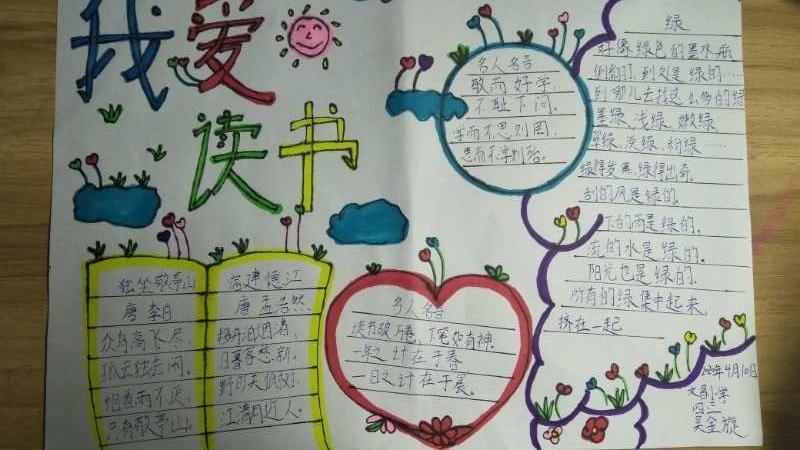 我爱
读书
独坐敬亭山
唐 李白
众鸟高飞尽，
孤云独去闲。
相看两不厌，
只有敬亭山。
宿建德江
唐 孟浩然
移舟泊烟渚，
日暮客愁新。
野旷天低树，
江清月近人。
名人名言
敏而好学，
不耻下问。
学而不思则罔，
思而不学则殆。
名人名言
读书破万卷，下笔如有神。
一年之计在于春
一日之计在于晨。
绿
好像绿色的墨水瓶
倒翻了，到处是绿的……
到哪儿去找这么多的绿
墨绿、浅绿、嫩绿、
翠绿、淡绿、粉绿……
绿得发黑、绿得出奇。
刮的风是绿的，
下的雨是绿的，
流的水是绿的，
阳光也是绿的，
所有的绿集中起来，
挤在一起
年4月10日
文昌小学
四
吴金旋